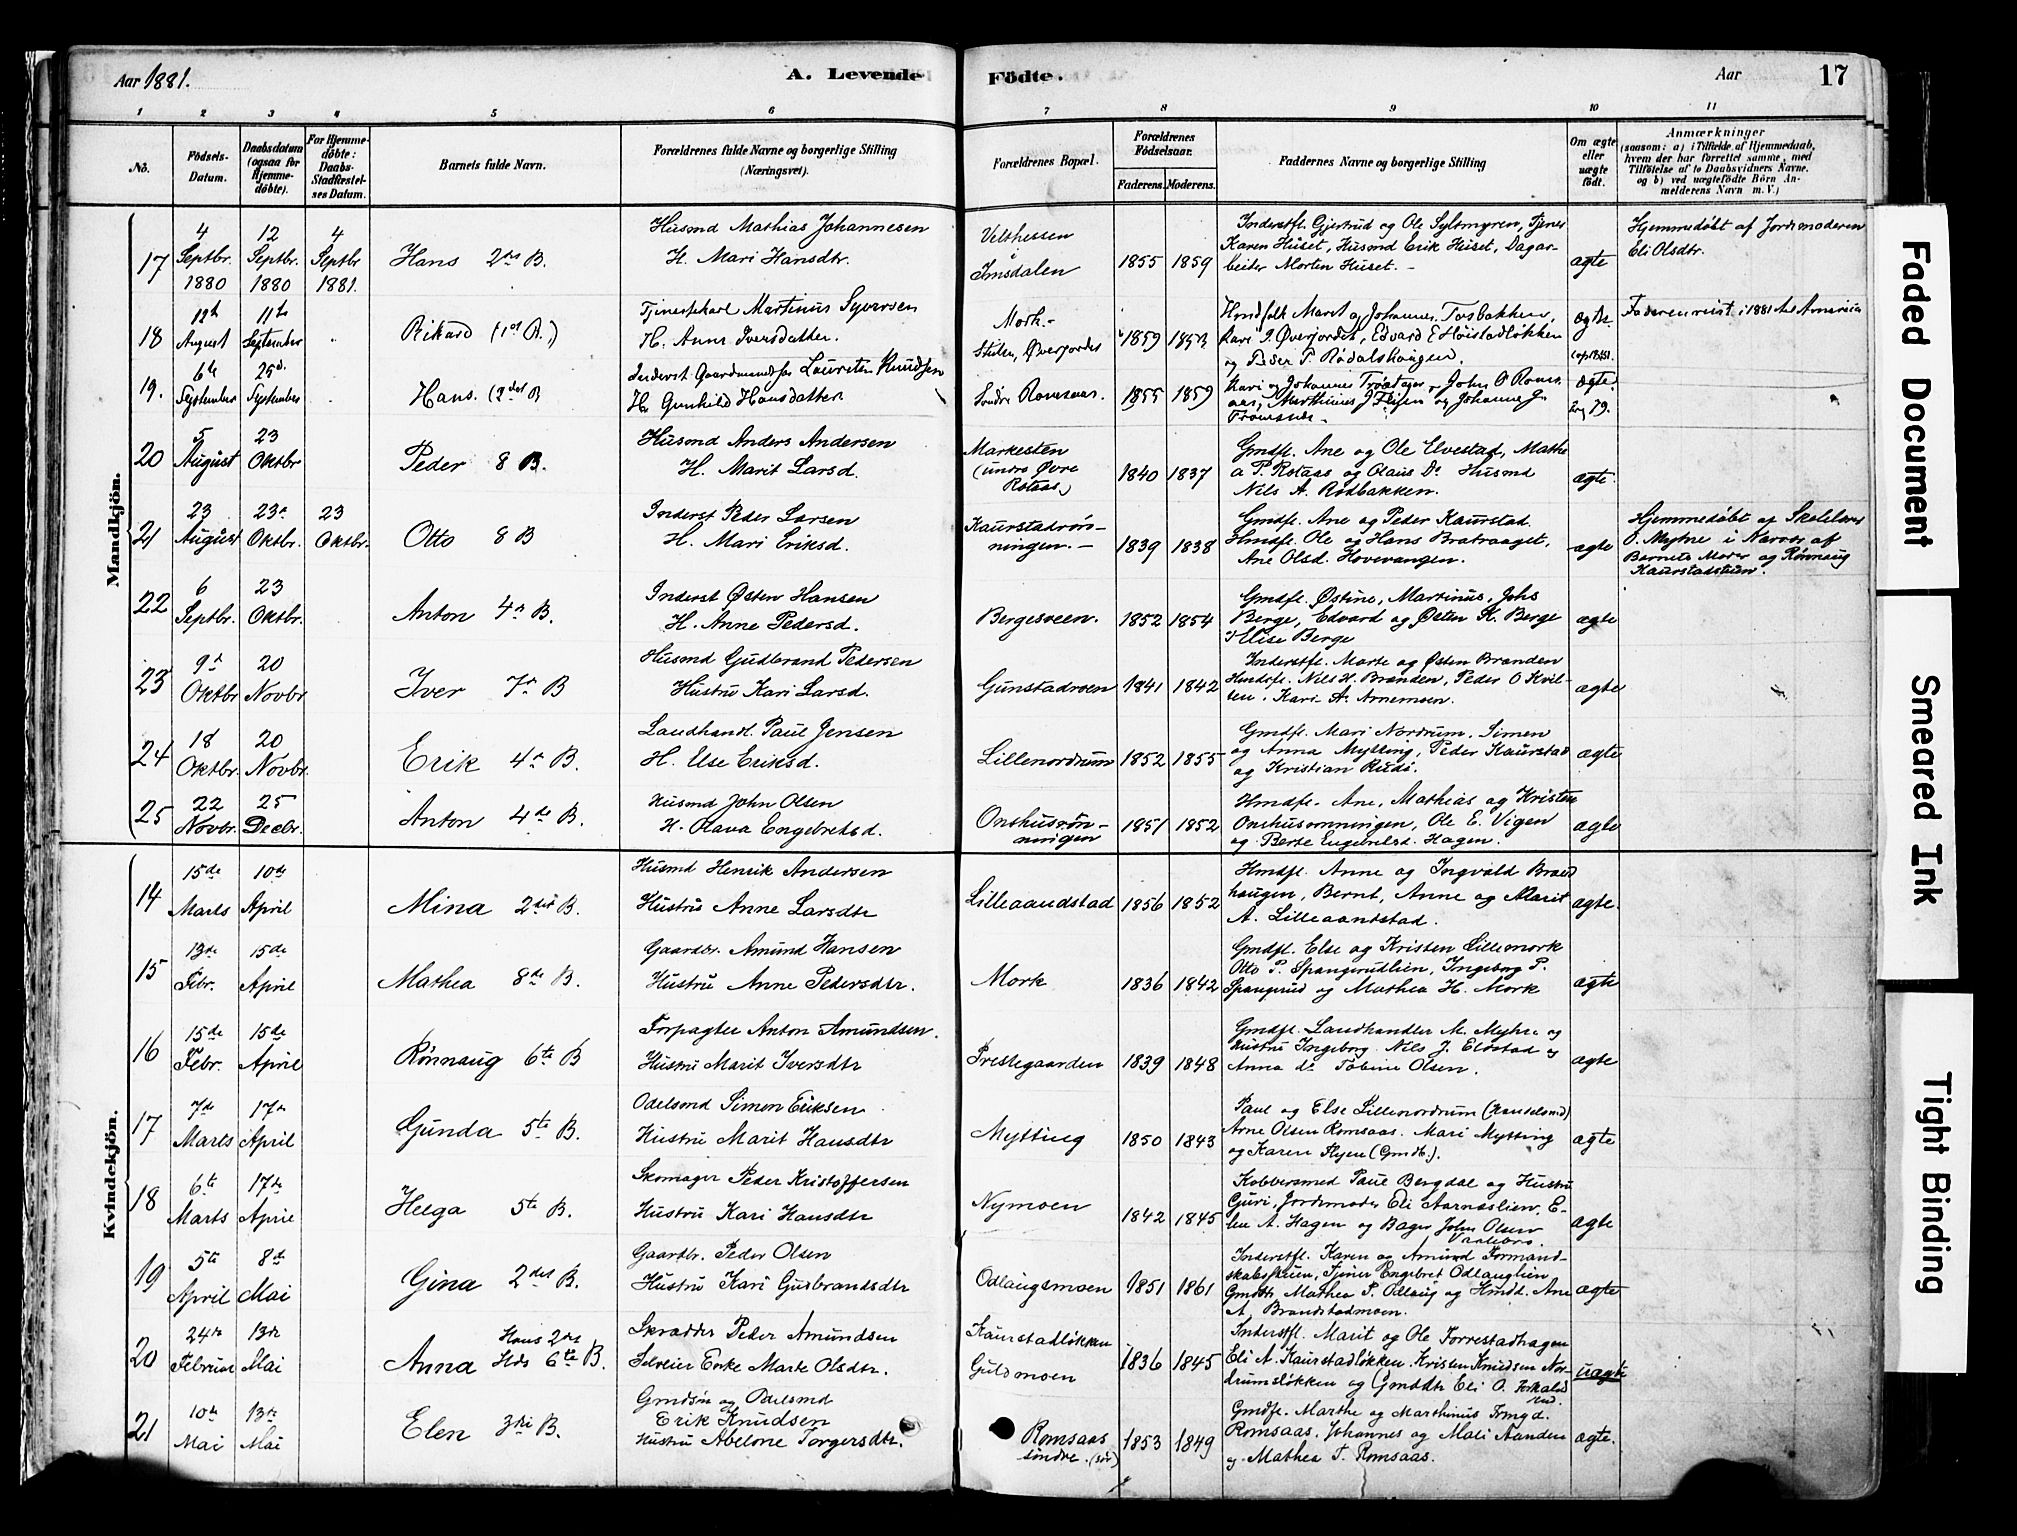 Aar 1881.
A. Levende Födte.
Aar
17
1 2 3 4 5 6 7 8 9 10 11
No.
Födsels-Datum.
Daabsdatum (ogsaa for Hjemmedöbte).
For Hjemmedöbte: Daabs-Stadfæstelses Datum.
Barnets fulde Navn.
Forældrenes fulde Navne og borgerlige Stilling (Næringsvei).
Forældrenes Bopæl.
Forældrenes Födselsaar.
Faderens. Moderens.
Faddernes Navne og borgerlige Stilling
Om ægte eller uægte født.
Anmærkninger
(saasom: a) i Tilfælde af Hjemmedaab, hvem der har forrettet samme, med Tilföielse af to Daabsvidners Navne, og b) ved uægtefödte Börn Anmelderens Navn m. V.)
Mandkjön.
17
4 Septbr. 1880
12 Septbr. 1880
4 Septbr 1881.
Hans
Husmd Mathias Johannesen
H. Mari Hansdtr.
Imsdalen
1855 1859
Inderstfl. Gjertrud og Ole Syltmyren, Tjener
Karen Huset, Husmd Erik Huset, Dagar-
beider Morten Huset.
ægte
Hjemmedøbt af Jordmoderen
Eli Olsdtr.
18
August
September
Rikard
Tjenestekarl Martinus Syversen
H. Anne Iversdatter.
Mork.
1859
Edvard E Høistadløkken
ægte
Faderen reist i 1881 til Amerika
19.
6te September
25d. September
Hans.
H. Gunhild Hansdatter
Søndre Romsaas.
1855 1859
ægte
20
5 August
23 Oktbr
Peder 8 B.
Husmd Anders Andersen
H. Marit Larsd.
Markesten
(under Øvre
Rotaas)
1840 1837
Gmdfl. Ane og Ole Elvestad, Mathe
a P. Rotaas og Olaus Do Husmd
Nils A. Rødbakken.
ægte
21
23 August
23 Oktbr.
23 Oktbr.
Otto 8 B
Inderst Peder Larsen
H. Mari Eriksd.
Kaurstadrøn-
ningen.
1839 1838
Gmdfl. Ane og Peder Kaurstad.
Hmdfl. Ole og Hans Bratraaget,
Ane Olsd. Hovevangen.
ægte
Hjemmedøbt af Skolelærer
O. Myhre i Nærvær af
Barnets Moder og Rønnaug
22
6 Septbr.
23 Oktbr.
Anton 4 B.
Inderst Østen Hansen
H. Anne Pedersd.
Bergesveen.
1852 1854
Gmdfl. Østine, Martinus, Johs
Berge, Edvard og Østen K. Berge
Elise Berge
ægte
23
9 Oktbr
20 Novbr
Iver 7 B
Husmd Gudbrand Pedersen
Hustru Kari Larsd.
Gunstadroen
1841 1842
Inderstfl. Marte og Østen Branden
Nils H. Branden, Peder O Kvil-
ten. Kari A. Arnemoen.
ægte
24
18 Oktbr.
20 Novbr.
Erik 4 B.
Landhandl. Paul Jensen
H. Else Eriksd.
Lillenordrum
1852 1855
Gmdfl. Mari Nordrum, Simen
og Anna Mytting, Peder Kaurstad
og Kristian Ruds.
ægte
25
22 Novbr.
25 Decbr.
Anton 4de B.
Husmd John Olsen
H. Olava Engebretsd.
Onshusrøn-
ningen
1851 1852
Hmdfl. Ane, Mathias og Kristen
Ole E. Vigen
og Berte Engebretsd. Hagen.
ægte
Kvindekjön.
14
15de Marts
10de April
Mina 2det B.
Husmd Henrik Andersen
Hustru Anne Larsdtr
Lilleaandstad
1856 1852
Hmdfl. Anne og Ingvald
haugen, Bernt, Anne og Marit
A. Lilleaandstad.
ægte.
15
13de Febr.
15de April
Mathea 8de B.
Gaardbr. Amund Hansen
Hustru Anne Pedersdtr.
Mork
1836 1842
Gmdfl. Else og Kristen Lillemork
Otto P. Spangrudlien, Ingeborg P.
Spangrud og Mathea H. Mork
ægte
16
15de Febr.
15de April
Rønnaug 6te B
Forpagter Anton Amundsen.
Hustru Marit Iversdtr
Prestegaarden
1839 1848
Gmdfl. Landhandler M. Myhre og
Hustru Ingeborg. Nils J. Elostad og
Anna do Tobine Olsen.
ægte
17
7de Marts
17de April
Gunda 5te B.
Odelsmd Simen Eriksen
Hustru Marit Hansdtr
Mytting
1850 1843
Paul og Else Lillenordrum (Handelsmd)
Arne Olsen Romsaas. Mari Mytting
og Karen (Gmdb.).
ægte
18
6te Marts
17de April
Helga 5te B.
Skomager Peder Kristoffersen
Hustru Kari Hansdtr
Nymoen
1842 1845
Kobbersmed Paul Bergdal og Hustru
Guri, Jordemoder Eli Aarnæslien, E-
len A. Hagen og Bager John Olsen
ægte
19
5te April
8de Mai
Gina 2det B.
Gaardbr. Peder Olsen
Hustru Kari Gudbrandsdtr
Odlaugsmoen
1851 1861
Inderstfl. Karen og Amund Formand-
Tjener Engebret Odlauglien
Gmdtr Mathea P. Odlaug og Hmdd. Ane
A. Brandstadmoen.
ægte
20
24de Februar
13de Mai
Anna Hans 2det
Hds 6te B.
Skrædder Peder Amundsen
Enke Marte Olsdtr.
Kaurstadløkken
Guldmoen
1836 1845
Inderstfl. Marit og Ole Forrestadhagen
Eli A. Kaurstadløkken. Kristen Knudsen Nor-
drumsløkken og Gmddtr Eli O.
uægte
21
10de Mai
13de Mai
Elen 3die B.
Gmdsøn og Odelsmd
Erik Knudsen
Hustru Abelone Torgersdtr.
Romsaas
søndre.
1853 1849
Gmdfl. Marthe og Marthinus
Romsaas, Johannes og Mali Aanden
og Mathea T. Romsaas.
ægte.
Faded Document
Smeared Ink
Tight Binding